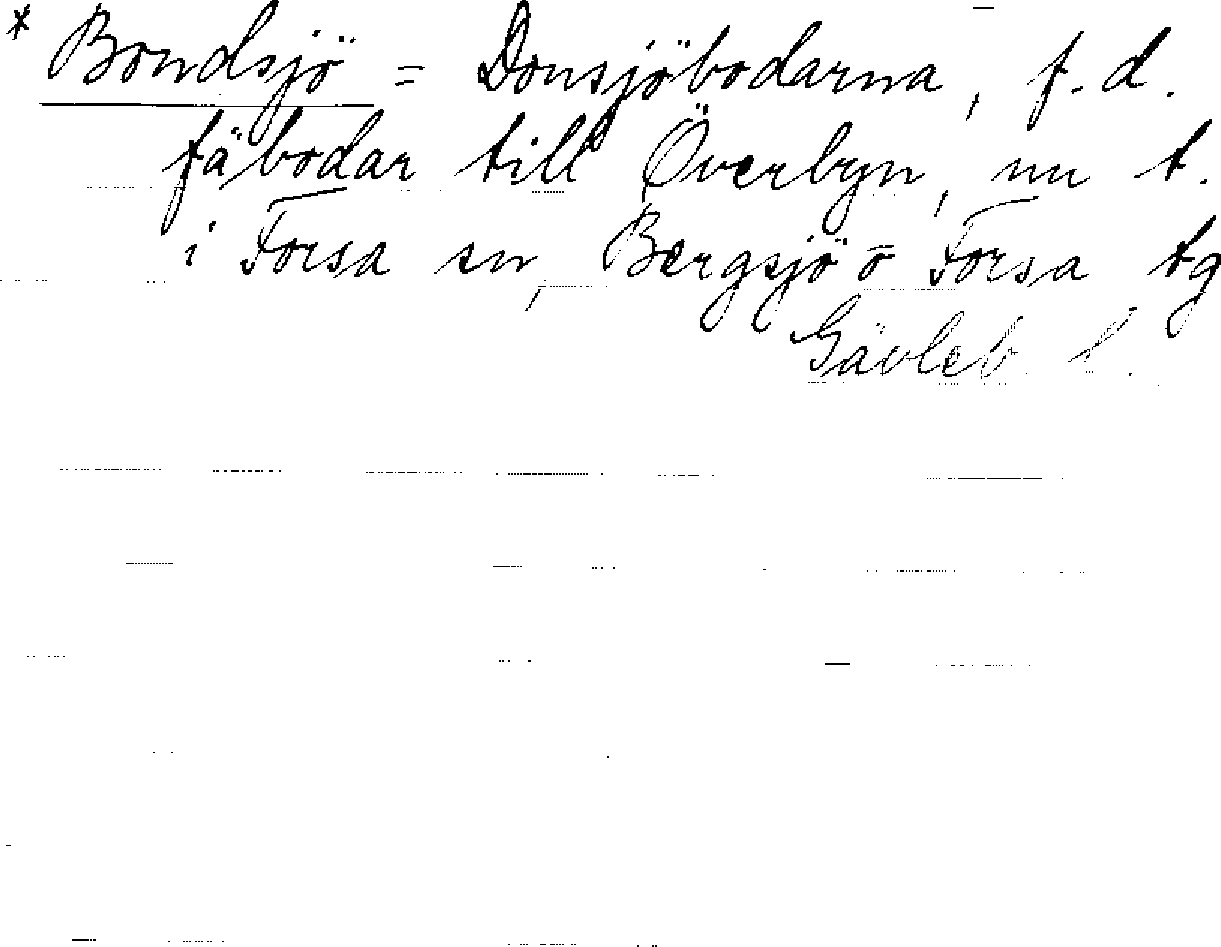 * Bondsjö = Donsjöbodarna, f.d.
fäbodar till Överbyn, nu t.
i Forsa sn, Bergsjö o Forsa tg
Gävleb. l.